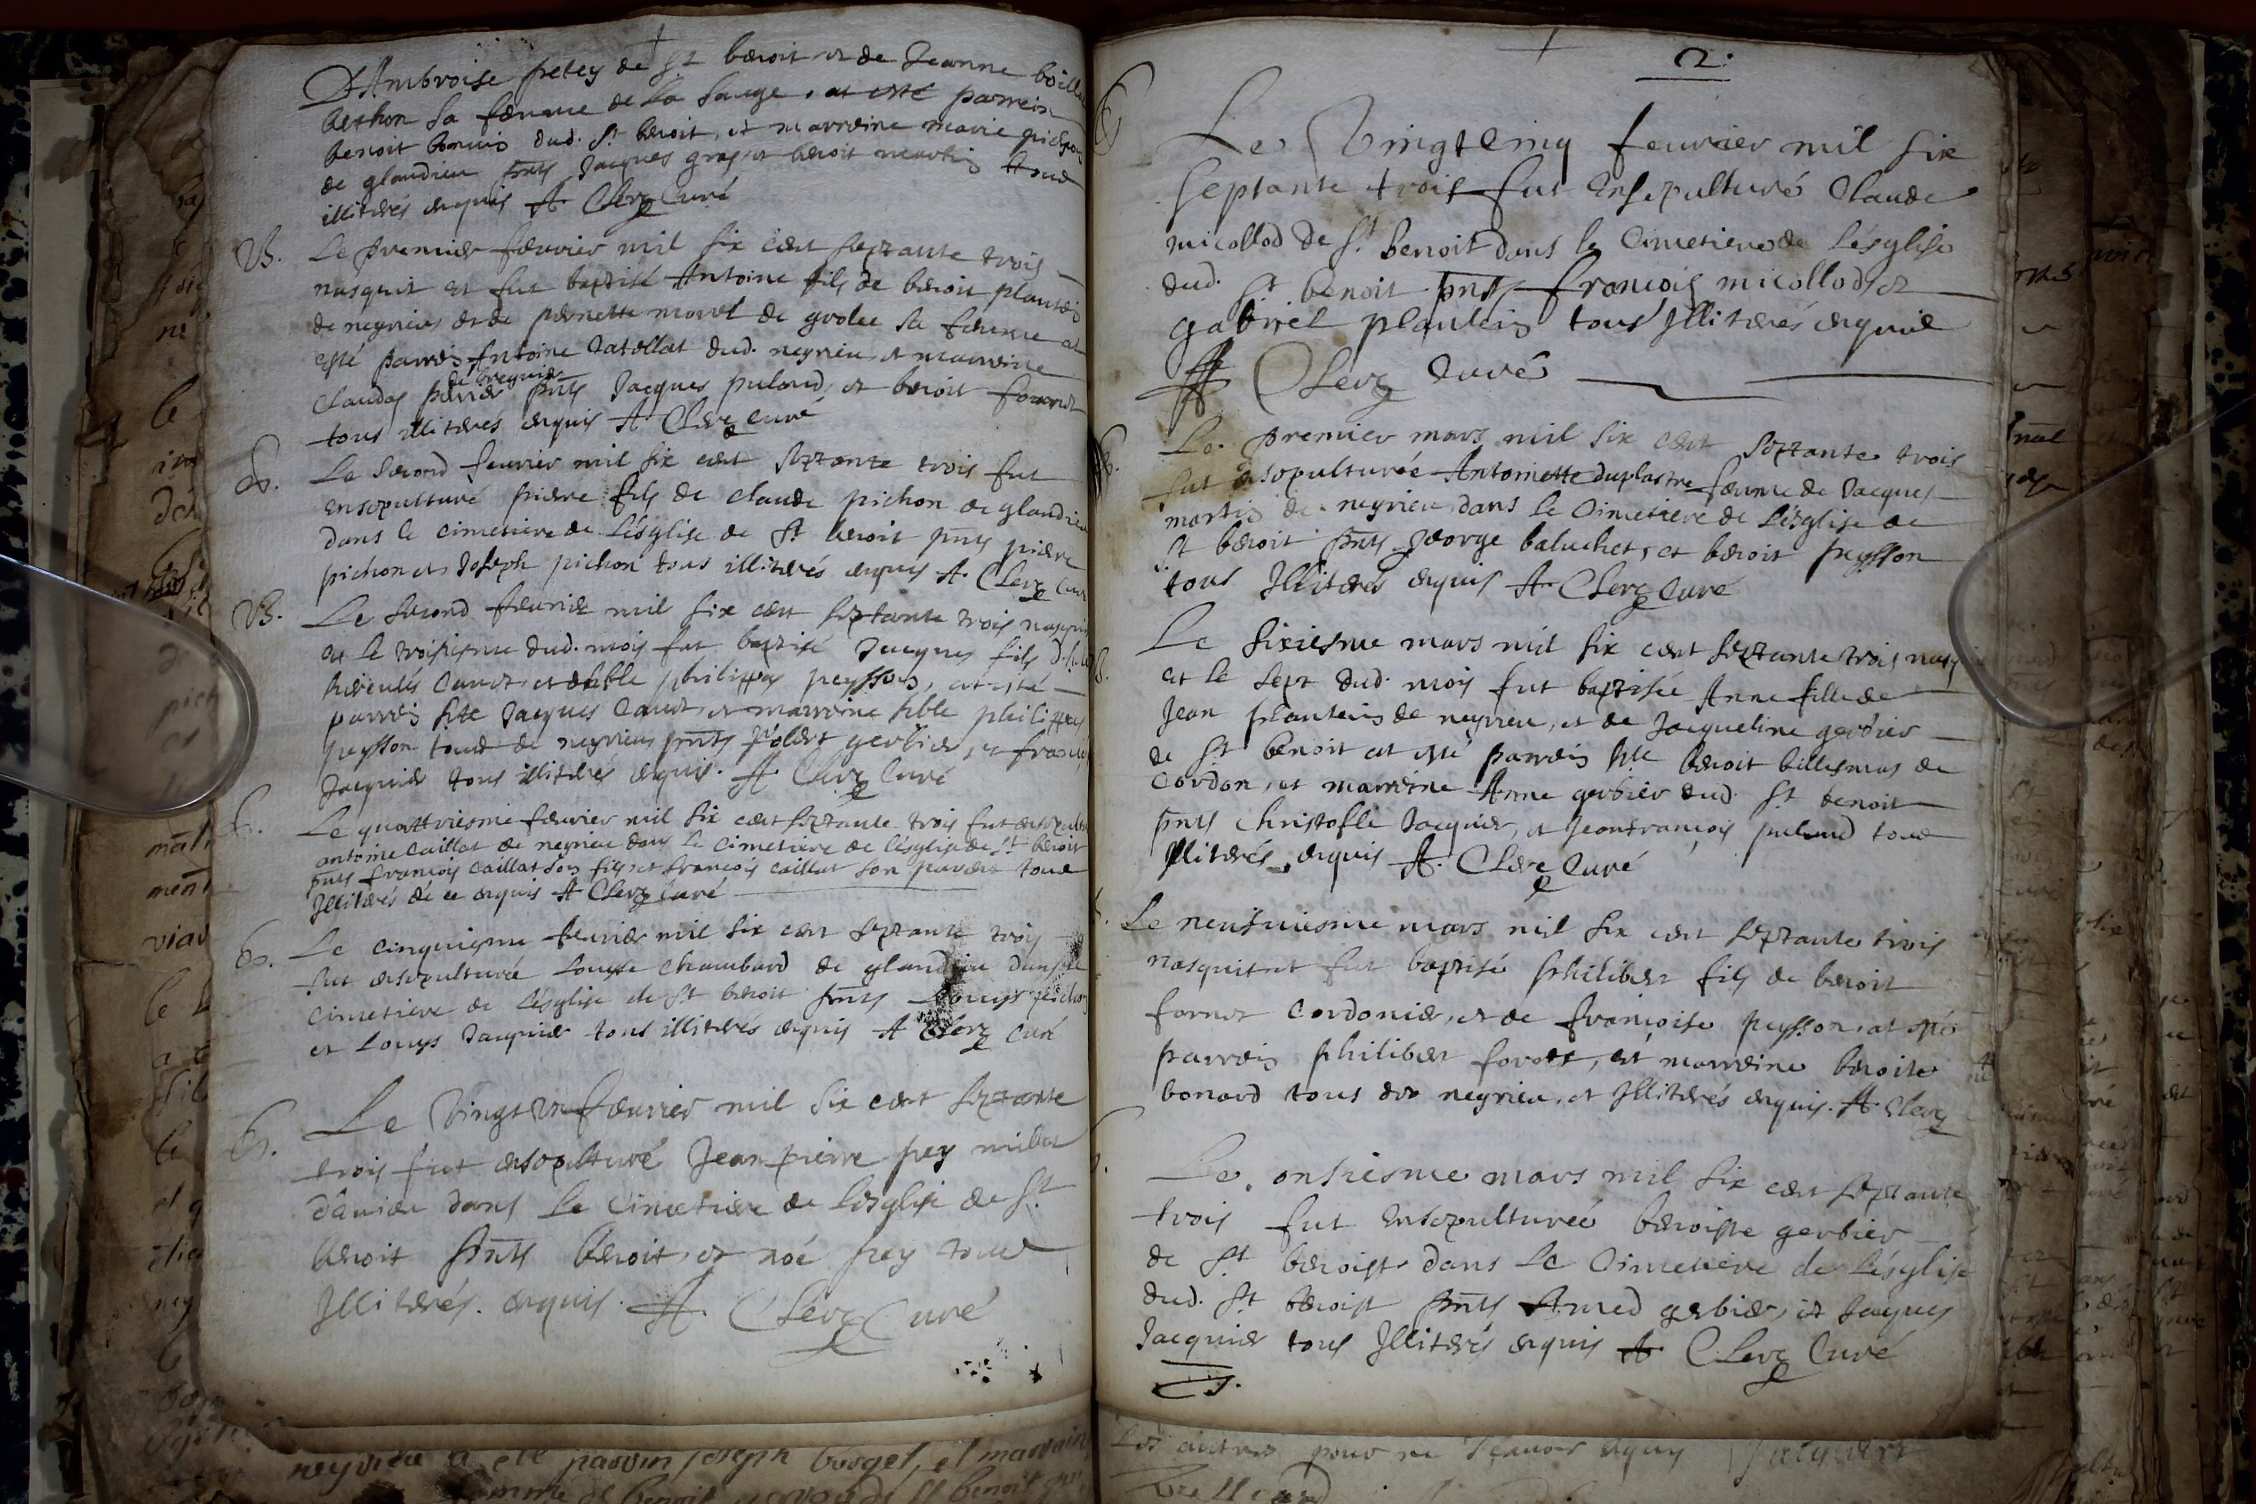 D'Ambroise petey de St benoit et de Jeanne
berthon sa femme de la sauge, at esté parrein
benoit bonuin dud. St benoit, et marreine marie pichon
de glandieu pnts Jacques gras et benoit martin tous
illiterés enquis A Clerc Curé
B. Le premier feuvrier mil six cent septante trois
nasquit et fut baptisé Antoine fils de benoit plantein
de neyrieu et de pernette morel de grolee sa femme at
esté parrein Antoine Catellat dud. neyrieu et marreine
de breynier
Claudaz perrier pnts Jacques puland, et benoit fornet
tous illiterés enquis A Clerc Curé
S. Le second feuvrier mil six cent septante trois fut
ensepulturé pierre fils de claude pichon de glandieu
dans le cimetiere de L'ésglise de St benoit pnts pierre
pichon et Joseph pichon tous illiterés enquis A. Clerc Curé
B. Le second feuvrier mil six cent septante trois nasquit
et le troisiesme dud. mois fut baptisé Jacques fils
hercules Canet, et philippaz peysson, at esté
parrein hte Jacques Canet, et marreine hble philippaz
peysson tous de neyrieu pnts gerbier, et francois
Jacquier tous illiterés enquis. A. Clerc Curé
S. Le quattriesme feuvrier mil six cent septante trois fut ensepulturé
antoine Caillat de neyrieu dans le cimetiere de l'ésglise de St benoit
pnts francois Caillat son fils et francois caillat son parent tous
Jlliterés de ce enquis A Clerc Curé
S. Le cinquiesme feuvrier mil six cent septante trois
fut ensepulturée Louyse Chambard de glandieu dans le
cimetiere de L'ésglise de St benoit pnts Louys pichon
et Louys Jacquier tous illiterés enquis A Clerc Curé
S. Le Vingt Un feuvrier mil six cent septante
trois fut ensepulturé Jean pierre pey
dans Le Cimetiere de L'esglise de St
benoit pnts benoit, et noé pey tous
Jlliterés enquis. A. Clerc Curé
2.
Le Vingt Cinq feuvrier mil six
septante trois fut Ensepulturé Claude
micollod de St benoit dans le Cimetiere de L'ésglise
dud. St benoit pnts françois micollod, et
gabriel plantein tous Jlliterés enquis
A Clerc Curé
S. Le premier mars mil six cent septante trois
fut ensepulturée Antoinette duplastre femme de Jacques
martin de neyrieu dans Le Cimetiere de L'ésglise de
St benoit pnts George baluchet, et benoit peysson
tous Jlliterés enquis A Clerc Curé
B. Le sixiesme mars mil six cent septante trois nasquit
et le sept dud. mois fut baptisée Anne fille de
Jean plantein de neyrieu, et de Jacqueline gerbier
de St benoit at esté parrein hte benoit billiemas de
Cordon, et marreine Anne gerbier dud. St benoit
pnts Christofle Jacquier, et Jean françois puland tous
Jlliterés enquis A. Clerc Curé
Le neufuiesme mars mil six cent septante trois
nasquit et fut baptisé philibert fils de benoit
fornet Cordonier, et de françoise peysson, at esté
parrein philibert fornet, et marreine benoite
bonard tous de neyrieu, et Jlliterés enquis. A. Clerc
Le onsiesme mars mil six cent septante
trois fut Ensepulturée benoiste gerbier
de St benoist dans Le Cimetiere de L'ésglise
dud. St benoist pnts Amed gerbier, et Jacques
Jacquier tous Jlliterés enquis A Clerc Curé
neyrieu a eté parrin joseph borgel, et marraine